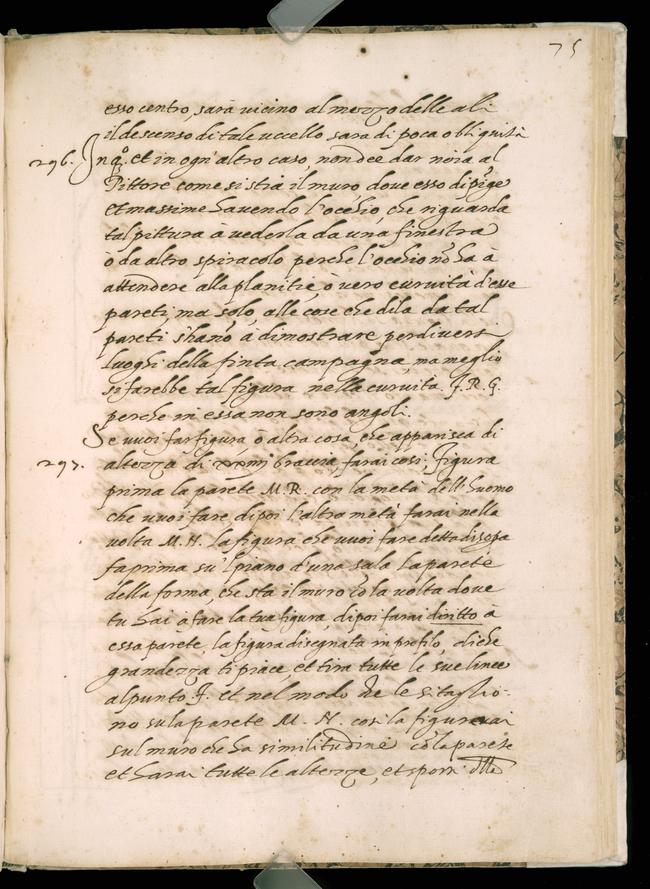 75
esso centro, sarà vicino al mezzo delle ali
il descenso di tale uccello, sara di poca obliquità
296. In q.o et in ogn'altro caso, non dee dar noia al
Pittore come si stia il muro dove esso dipīge
et massime havendo l'occhio, che riguarda
tal pittura à vederla da una finestra
ò da altro spiracolo perche l'occhio nō ha à
attendere alla planitie, ò vero curvità d'esse
pareti, ma solo, alle cose che di la da tal
pareti s'hanō à dimostrare per diversi
luoghi della finta campagna, ma meglio
si farebbe tal figura nella curvità F. R. G.
perche in essa non sono angoli.
Se vuoi far figura ò altra cosa, che apparisca di
297. altezza di braccia, farai cosi, figura
prima la parete M.R. con la metà dell'huomo
che vuoi fare, di poi l'altra metà farai nella
volta M.H. la figura che vuoi fare detta di sopa
fa prima su'l piano d'una sala la parete
della forma, che sta il muro cō la volta dove
tu hai à fare la tua figura, di poi farai diritto à
essa parete, la figura disegnata in profilo, di che
grandezza ti piace, et tira tutte le sue linee
al punto F. et nel modo che le si taglio-
no su la parete M. H. cosi la figurerai
sul muro che ha similitudine cō la parete
et harai tutte le altezze, et sporti